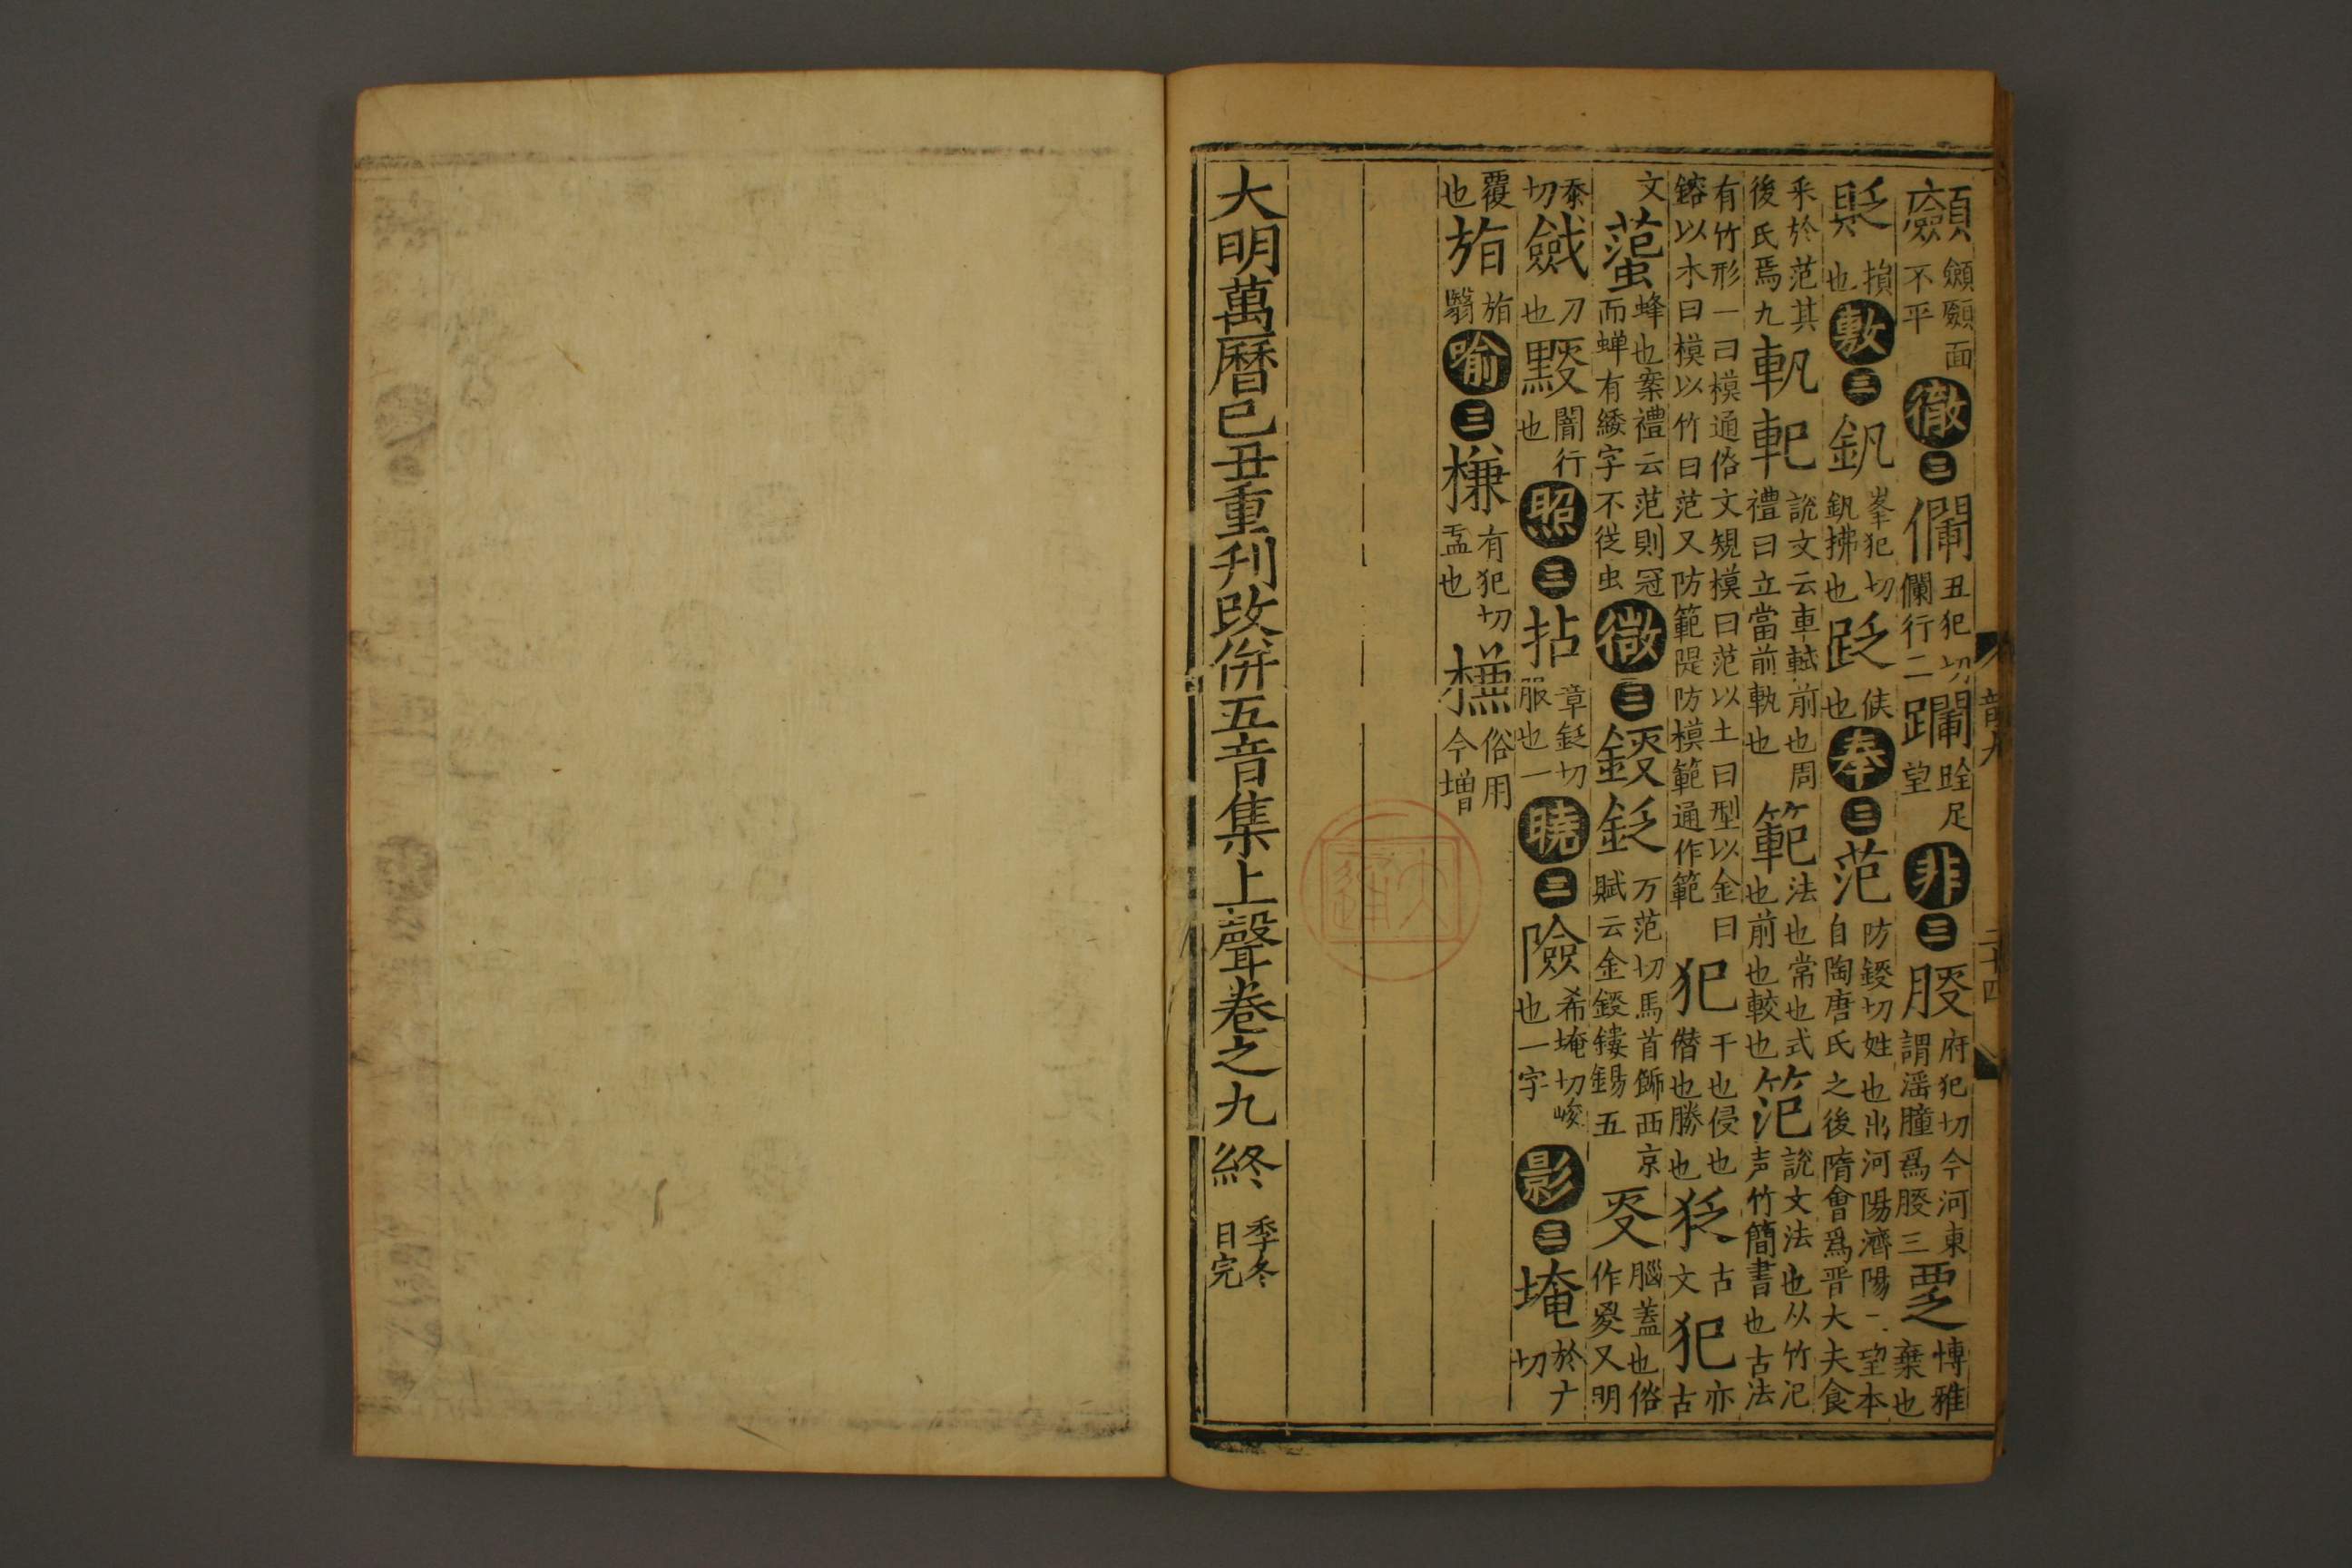 顩顩面不平徹三㒈丑犯切㒈行二躝跧足望非三䏮府犯切今河東謂淫腫爲䏮三覂慱雅棄也
貶損也敷三釩峯犯切釩拂也𧿒𠊱也奉三范防錽切姓也出河陽濟陽二望本自陶唐氏之後隋會爲晋大夫食
釆於范其後氏焉九軓軋說文云車軾前也周禮曰立當前軓也範法也常也式也前也較也笵說文法也从竹氾声竹簡書也古法
有竹形一曰模通俗文規模曰范以土曰型以金曰鎔以木曰模以竹曰范又防範隄防模範通作範犯干也侵也僭也勝也㹟古文犯亦古
文䗋蜂也案禮云范則冠而蝉有緌字不從虫微三錽鉣万范切馬首飾西京賦云金錽鏤鍚五㚇腦蓋也俗作㚇又明
忝切㪘刀也䵑闇行也照三拈章錽切服也一曉三險希埯切峻也一字影三埯於广切
覆也㫋㫋翳喻三槏有犯切盂也𣞤俗用今增
大明萬曆己丑重刋改併五音集上聲卷之九終季冬日完
韻九 二十四